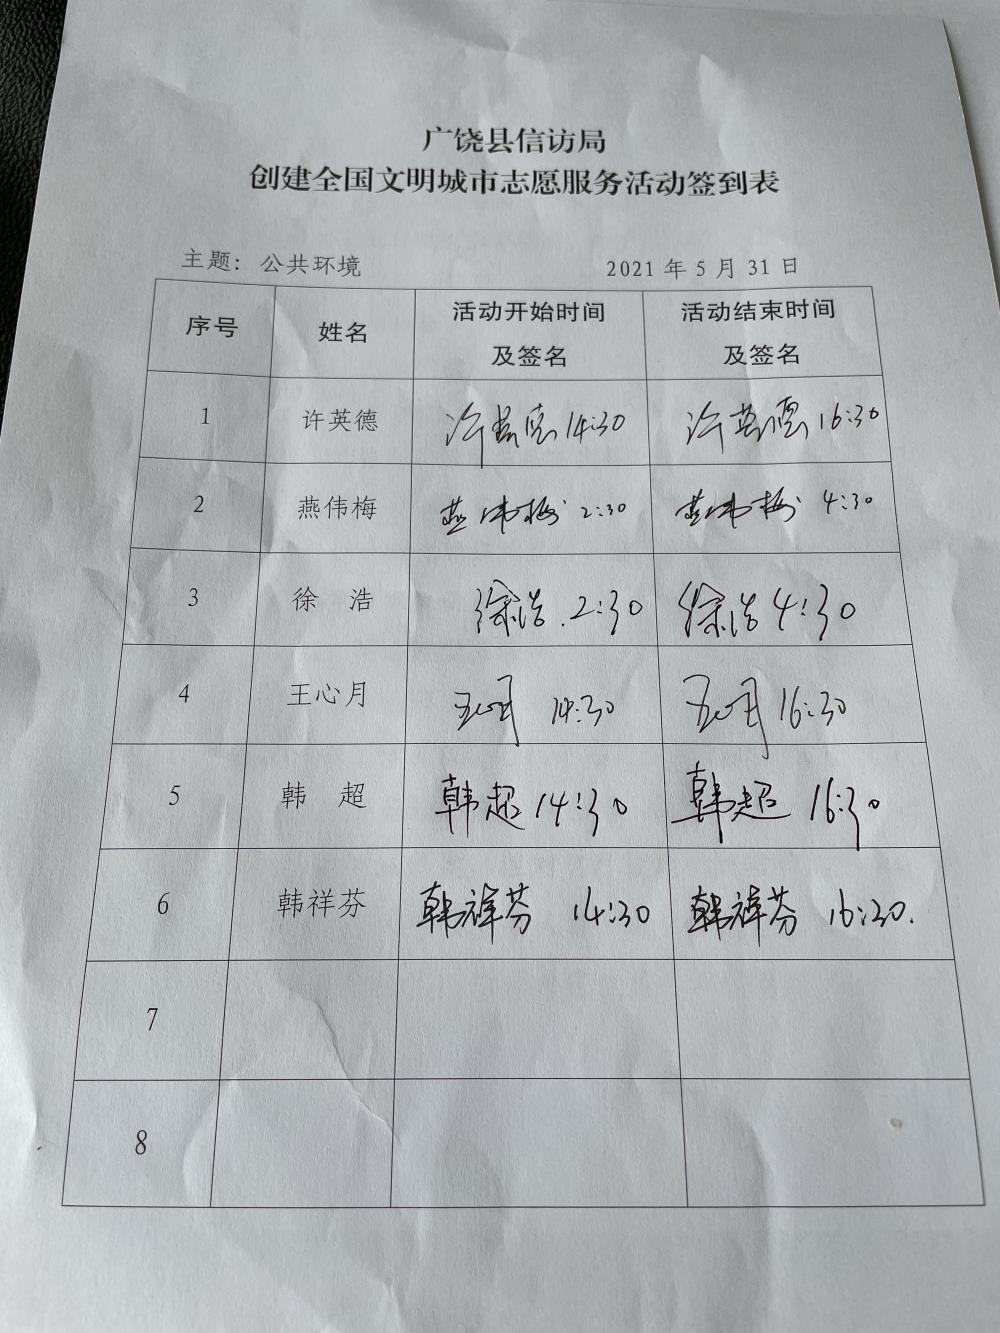 广饶县信访局
创建全国文明城市志愿服务活动签到表
主题：公共环境 2021 年 5 月 31 日
序号 姓名 活动开始时间及签名 活动结束时间及签名
1 许英德 许英德 14:30 许英德 16:30
2 燕伟梅 燕伟梅 2:30 燕伟梅 4:30
3 徐 浩 徐浩 2:30 徐浩 4:30
4 王心月 王心月 14:30 王心月 16:30
5 韩 超 韩超 14:30 韩超 16:30
6 韩祥芬 韩祥芬 14:30 韩祥芬 16:30.
7
8